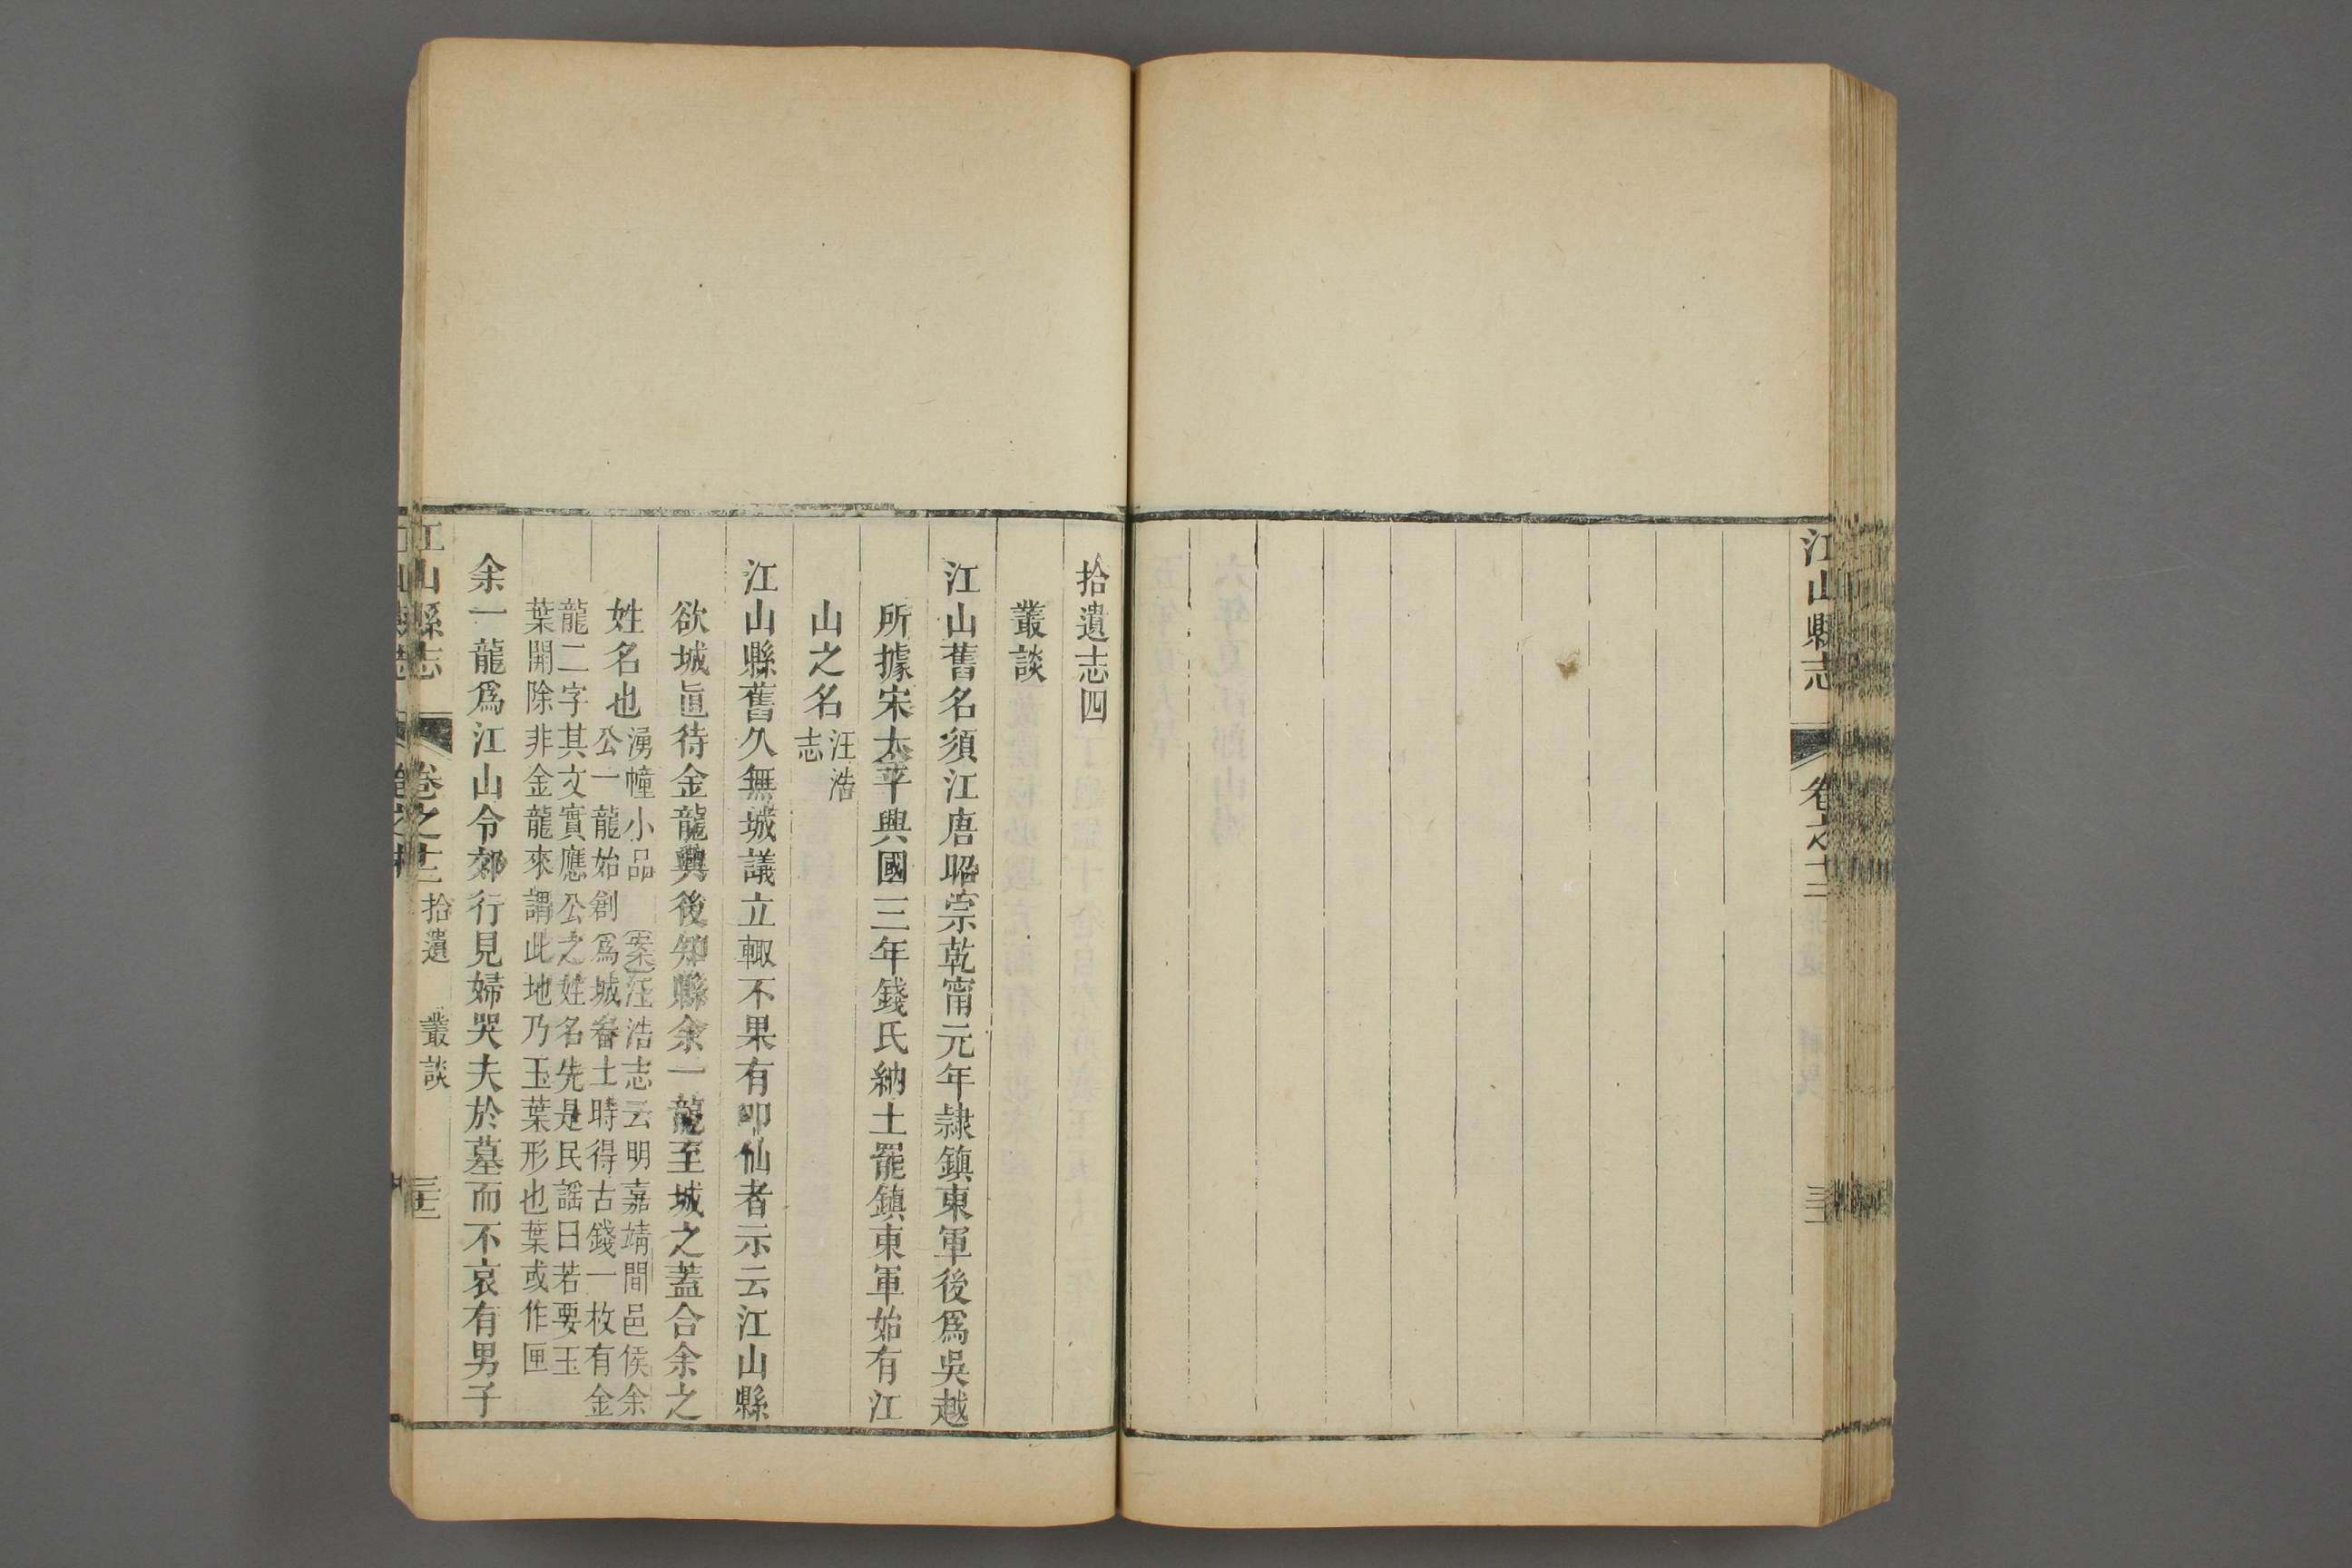 江山縣志
卷之十二
三十一
拾遺志四
叢談
江山舊名須江唐昭宗乾甯元年隷鎮東軍後爲吳越
所據宋太平興國三年錢氏納土罷鎮東軍始有江
山之名汪浩
志
江山縣舊久無城議立輙不果有叩仙者示云江山縣
欲城眞待金龍興後知縣余一龍至城之蓋合余之
姓名也湧幢小品 案汪浩志云明嘉靖間邑侯余
公一龍始創爲城畚土時得古錢一枚有金
龍二字其文實應公之姓名先是民謡曰若要玉
葉開除非金龍來謂此地乃玉葉形也葉或作匣
余一龍爲江山令郊行見婦哭夫於墓而不哀有男子
江山縣志
卷之十二
拾遺 叢談
三十二